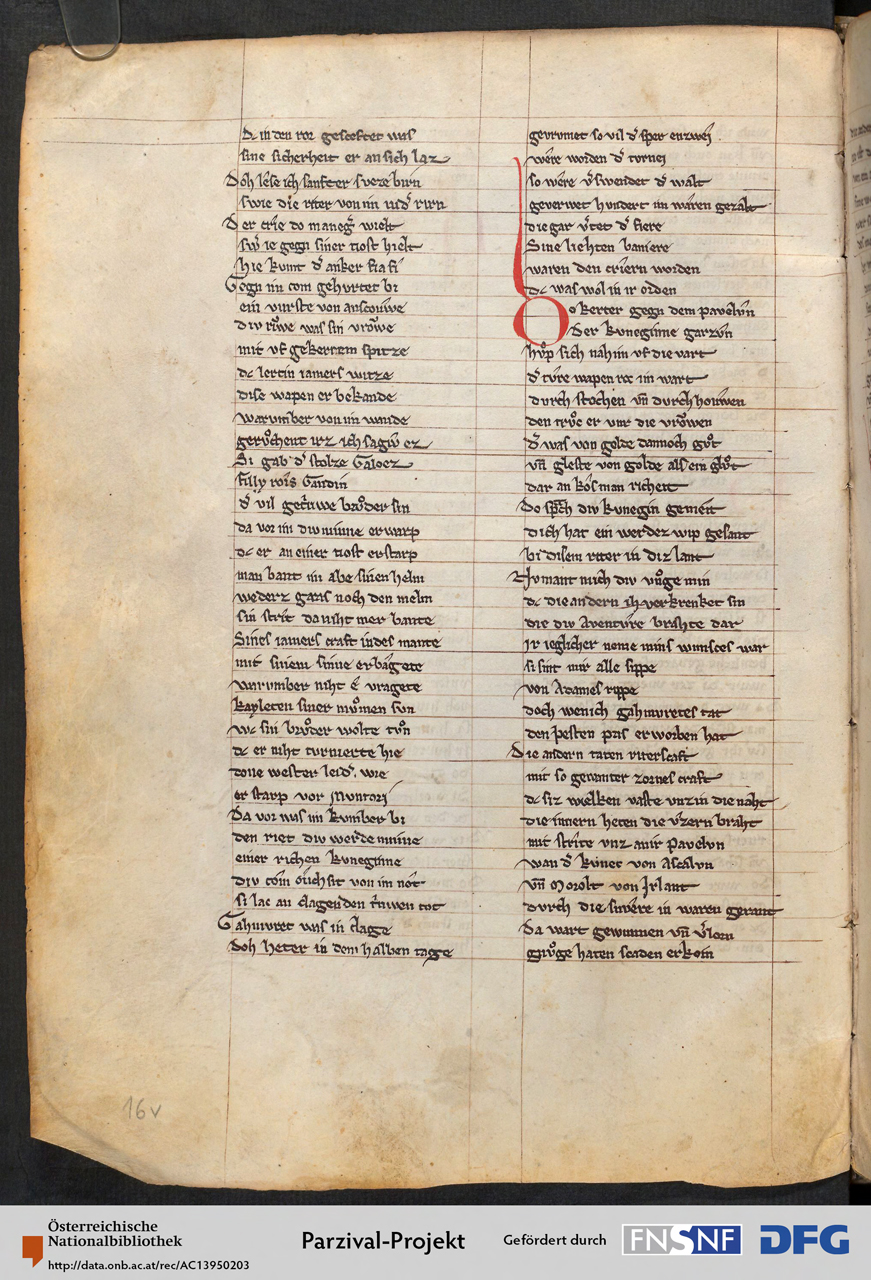 dc in den roc gesteftet was
sine sicherheit er an sich laz
Doh lese ich sanfter sveze birn
swie die riter von im nidˢ rirn
Der crie do manegˢ wielt
swˢ ie gegn siner tiost hielt
hie kvmt dˢ anker fia fi
Gegn im com gehvrtet bi
ein vurste von anscouwe
div riwe was sin vrowe
mit vf gekertem spitze
dc lertin iamers witze
dise wapen er bekande
warvmber von im wande
gervͦchent irz ich sagiw ez
Si gab dˢ stolze Galoez
filly rois Gandin
dˢ vil getriwe brvͦder sin
da vor im div minne erwarp
dc er an einer tiost erstarp
man bant im abe sinen helm
wederz gras noch den melm
sin strit da niht mer bante
Sines iamers craft in des mante
mit sinem sinne er bagete
warvmber niht e vragete
kayleten siner mvͦmen svn
wc sin brvͦder wolte tvͦn
dc er niht tvrnierte hie
done wester leidˢ. wie
er starp vor Mvntori
Da vor was im kvmber bi
den riet div werde minne
einer richen kvneginne
div com och sit von im not
si lac an clagenden triwen tot
Gahmvret was in clage
Doh heter in dem halben tage
gevrvmet so vil dˢ sper enzwei
were worden dˢ tvrnei
so were vˢswendet dˢ walt
geverwet hvndert im waren gezalt
die gar vˢtet dˢ fiere
Sine liehten baniere
waren den criern worden
dc was wol in ir orden
Do kerter gegn dem pavelvn
Der kvneginne garzvn
hvͦp sich nah im vf die vart
dˢ tivre wapen roc im wart
dvrch stochen vn̄ dvrch howen
den trvͦc er vur die vrowen
dˢ was von golde dannoch gvͦt
vn̄ gleste von golde als ein glvͦt
dar an kos man richeit
Do sprach div kvnegin gemeit
dich hat ein werdez wip gesant
bi disem riter in diz lant
Nv mant mich div vuͦge min
dc die andern iht verkrenket sin
die div Aventivre brahte dar
ir ieglicher neme mins wunsces war
si sint mir alle sippe
von Adames rippe
doch wenich gahmvretes tat
den hesten pris erworben hat
Die andern taten riterscaft
mit so gewanter zornes craft
dc siz wielken vaste vnz in die naht
die innern heten die vzern braht
mit strite vnz an ir pavelvn
wan dˢ kvnec von Ascalvn
vn̄ Morolt von Irlant
dvrch die snvere in waren gerant
Da wart gewunnen vn̄ vˢlorn
gnvͦge haten scaden erkorn
16v
Österreichische
Nationalbibliothek
http://data.onb.ac.at/rec/AC13950203
Parzival-Projekt
Gefördert durch
FNSNF
DFG